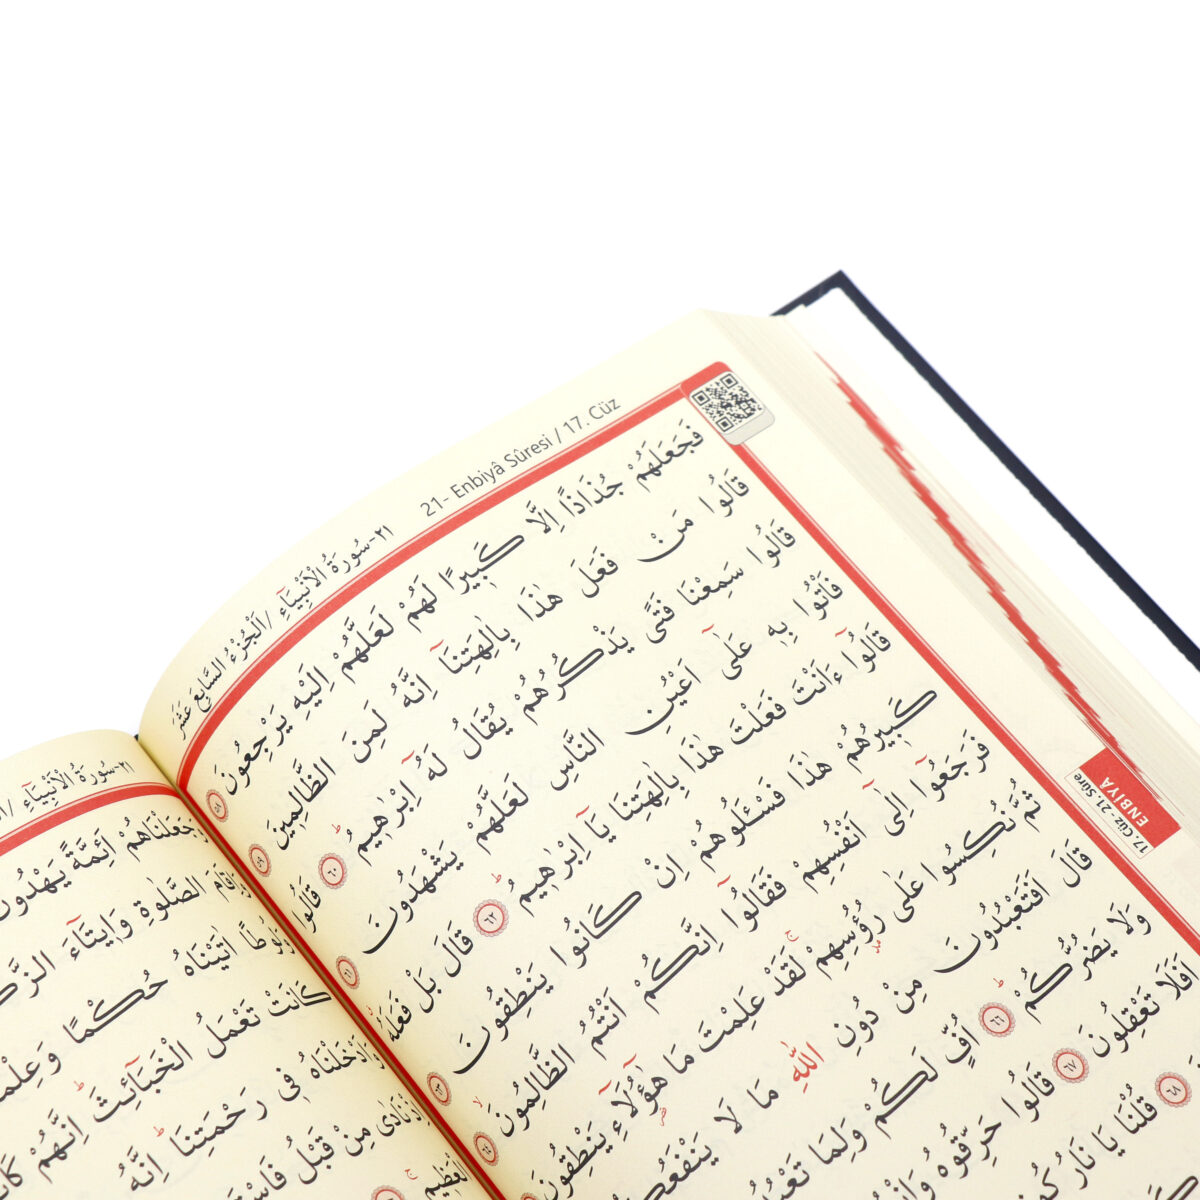 ٢١-سُورَةُ الْاَنْبِيَٓاءِ / اَلْجُزْءُ السَّابِعَ عَشَرَ
21- Enbiyâ Sûresi / 17. Cüz
فَجَعَلَهُمْ جُذَاذًا اِلَّا كَب۪يرًا لَهُمْ لَعَلَّهُمْ اِلَيْهِ يَرْجِعُونَ ﴿٥٨﴾
قَالُوا مَنْ فَعَلَ هٰذَا بِاٰلِهَتِنَٓا اِنَّهُ لَمِنَ الظَّالِم۪ينَ ﴿٥٩﴾
قَالُوا سَمِعْنَا فَتًى يَذْكُرُهُمْ يُقَالُ لَهُٓ اِبْرٰه۪يمُۜ ﴿٦٠﴾ قَالُوا
فَأْتُوا بِه۪ عَلٰٓى اَعْيُنِ النَّاسِ لَعَلَّهُمْ يَشْهَدُونَ ﴿٦١﴾
قَالُٓوا ءَاَنْتَ فَعَلْتَ هٰذَا بِاٰلِهَتِنَا يَٓا اِبْرٰه۪يمُۜ ﴿٦٢﴾ قَالَ بَلْ فَعَلَهُۗ
كَب۪يرُهُمْ هٰذَا فَسْـَٔلُوهُمْ اِنْ كَانُوا يَنْطِقُونَ ﴿٦٣﴾
فَرَجَعُٓوا اِلٰٓى اَنْفُسِهِمْ فَقَالُٓوا اِنَّكُمْ اَنْتُمُ الظَّالِمُونَۙ ﴿٦٤﴾
ثُمَّ نُكِسُوا عَلٰى رُؤُ۫سِهِمْۚ لَقَدْ عَلِمْتَ مَا هٰٓؤُ۬لَٓاءِ يَنْطِقُونَ
قَالَ اَفَتَعْبُدُونَ مِنْ دُونِ اللّٰهِ مَا لَا يَنْفَعُكُمْ
وَلَا يَضُرُّكُمْۜ ﴿٦٦﴾ اُفٍّ لَكُمْ وَلِمَا
اَفَلَا تَعْقِلُونَ ﴿٦٧﴾ قَالُوا حَرِّقُوهُ
﴿٦٨﴾ قُلْنَا يَا نَارُ
17. Cüz - 21. Sûre
ENBİYÂ
٢١-سُورَةُ الْاَنْبِيَٓاءِ /
وَجَعَلْنَاهُمْ اَئِمَّةً يَهْدُونَ
وَاِقَامَ الصَّلٰوةِ وَا۪يتَٓاءَ
وَلُوطًا اٰتَيْنَاهُ حُكْمًا وَعِلْمًا
كَانَتْ تَعْمَلُ الْخَبَٓائِثَۜ اِنَّهُمْ
وَاَدْخَلْنَاهُ ف۪ي رَحْمَتِنَاۜ اِنَّهُ
اِذْ نَادٰى مِنْ قَبْلُ
الْعَظ۪يمِۚ